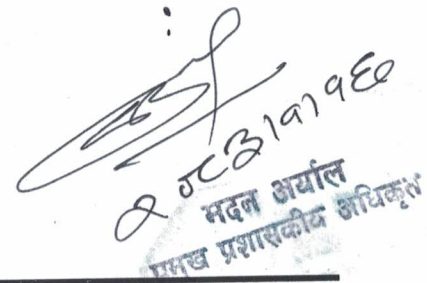 २०८३।१।१६
मदन अर्याल
प्रमुख प्रशासकीय अधिकृत